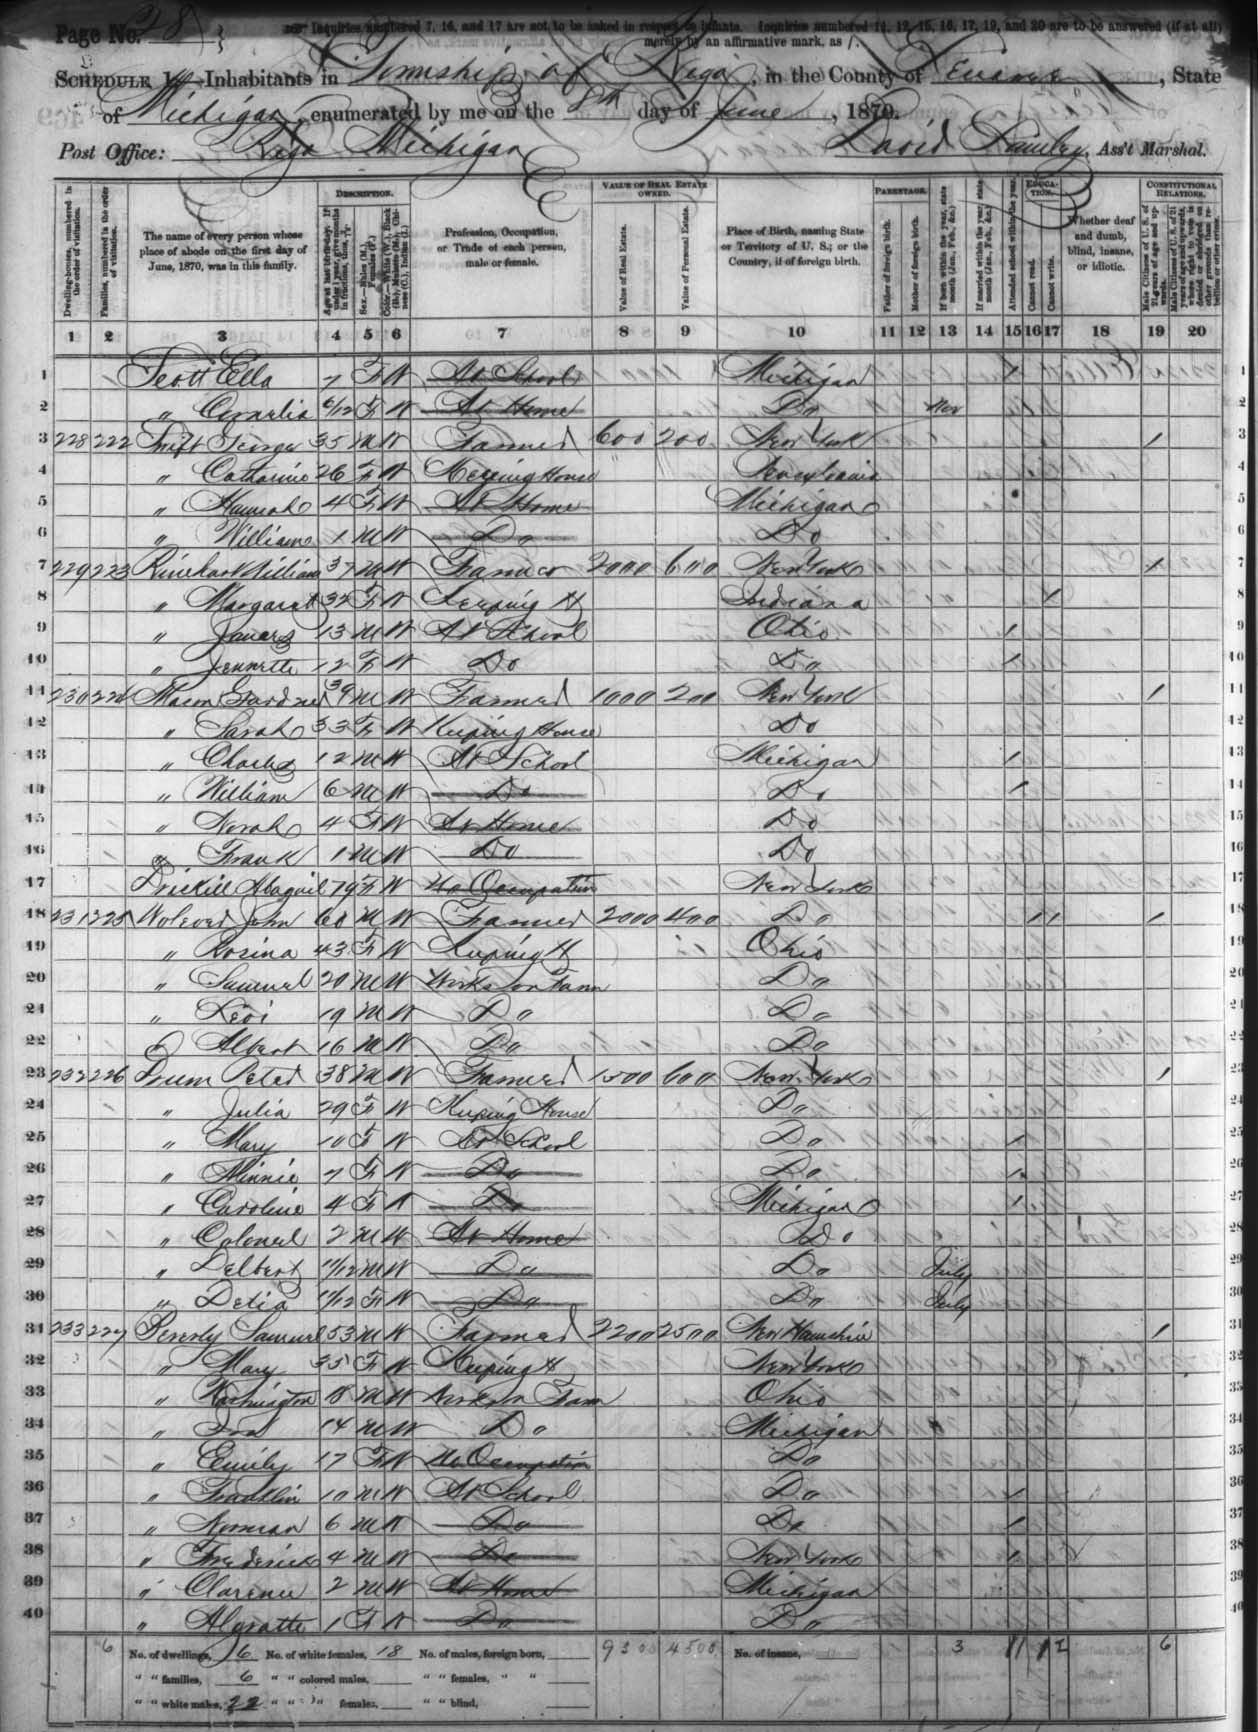 Page No. 28
Inquiries numbered 7, 16, and 17 are not to be asked in respect to infants. Inquiries numbered 11, 12, 15, 16, 17, 19, and 20 are to be answered (if at all)
merely by an affirmative mark, as /.
Schedule 1.—Inhabitants in Township of Riga, in the County of Lenawee, State
of Michigan, enumerated by me on the 8th day of June, 1870.
Post Office: Riga Michigan David Ass't Marshal.
Dwelling-houses, numbered in the order of visitation.
Families, numbered in the order of visitation.
The name of every person whose place of abode on the first day of June, 1870, was in this family.
Description.
Age at last birth-day. If under 1 year, give months in fractions, thus, 3/12
Sex.—Males (M.), Females (F.)
Color.—White (W.), Black (B.), Mulatto (M.), Chinese (C.), Indian (I.)
Profession, Occupation, or Trade of each person, male or female.
Value of Real Estate Owned.
Value of Real Estate.
Value of Personal Estate.
Place of Birth, naming State or Territory of U. S.; or the Country, if of foreign birth.
Parentage.
Father of foreign birth.
Mother of foreign birth.
If born within the year, state month (Jan., Feb., &c.)
If married within the year, state month (Jan., Feb., &c.)
Education.
Attended school within the year.
Cannot read.
Cannot write.
Whether deaf and dumb, blind, insane, or idiotic.
Constitutional Relations.
Male Citizens of U. S. of 21 years of age and upwards.
Male Citizens of U. S. of 21 years of age and upwards, whose right to vote is denied or abridged on other grounds than rebellion or other crime.
1 2 3 4 5 6 7 8 9 10 11 12 13 14 15 16 17 18 19 20
1 Scott Ella 7 F W At School Michigan / 1
2 " Cornelia 6/12 F W At Home Do Nov 2
3 228 222 Swift George 35 M W Farmer 600 200 New York / 3
4 " Catharine 26 F W Keeping House Pensylvania 4
5 " Hannah 4 F W At Home Michigan 5
6 " William 1 M W Do Do 6
7 229 223 Rinehart William 37 M W Farmer 2000 600 New York / 7
8 " Margaret 32 F W Keeping H Indiana / 8
9 " James 13 M W At School Ohio / 9
10 " Jennette 12 F W Do Do / 10
11 230 224 Mason Gardner 39 M W Farmer 1000 200 New York / 11
12 " Sarah 33 F W Keeping House Do 12
13 " Charles 12 M W At School Michigan / 13
14 " William 6 M W Do Do / 14
15 " Norah 4 F W At Home Do 15
16 " Frank 1 M W Do Do 16
17 Driskill Abagail 79 F W No Occupation New York 17
18 231 225 Wolever John 60 M W Farmer 2000 400 Do / / / 18
19 " Rosina 43 F W Keeping H Ohio 19
20 " Samuel 20 M W Works on Farm Do 20
21 " Levi 19 M W Do Do 21
22 " Albert 16 M W Do Do 22
23 232 226 Drum Peter 38 M W Farmer 1500 600 New York / 23
24 " Julia 29 F W Keeping House Do 24
25 " Mary 10 F W At School Do / 25
26 " Minnie 7 F W Do Do / 26
27 " Caroline 4 F W Do Michigan / 27
28 " Colonel 2 M W At Home Do 28
29 " Delbert 11/12 M W Do Do July 29
30 " Delia 11/12 F W Do Do July 30
31 233 227 Beverly Samuel 53 M W Farmer 2200 2500 New Hamshire / 31
32 " Mary 35 F W Keeping H New York 32
33 " Washington 18 M W Works on Farm Ohio 33
34 " Ira 14 M W Do Michigan 34
35 " Emily 17 F W No Occupation Do 35
36 " Franklin 10 M W At School Do / 36
37 " Norman 6 M W Do Do / 37
38 " Frederick 4 M W Do New York / 38
39 " Clarence 2 M W At Home Michigan 39
40 " 1 F W Do Do 40
6 No. of dwellings, 6 No. of white females, 18 No. of males, foreign born, 9300 4500 No. of insane, 3 11 1 2 6
" " families, 6 " " colored males, " " females, " "
" " white males, 22 " " " females, " " blind,